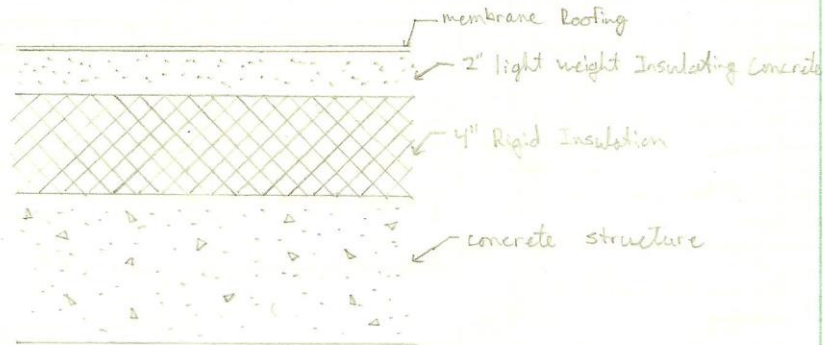 membrane Roofing
2" light weight Insulating Concrete
4" Rigid Insulation
concrete structure